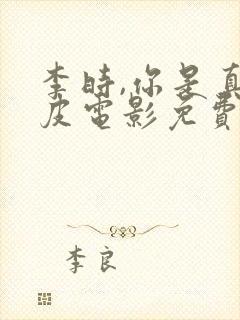 李時,你是真
皮電影免費
李良